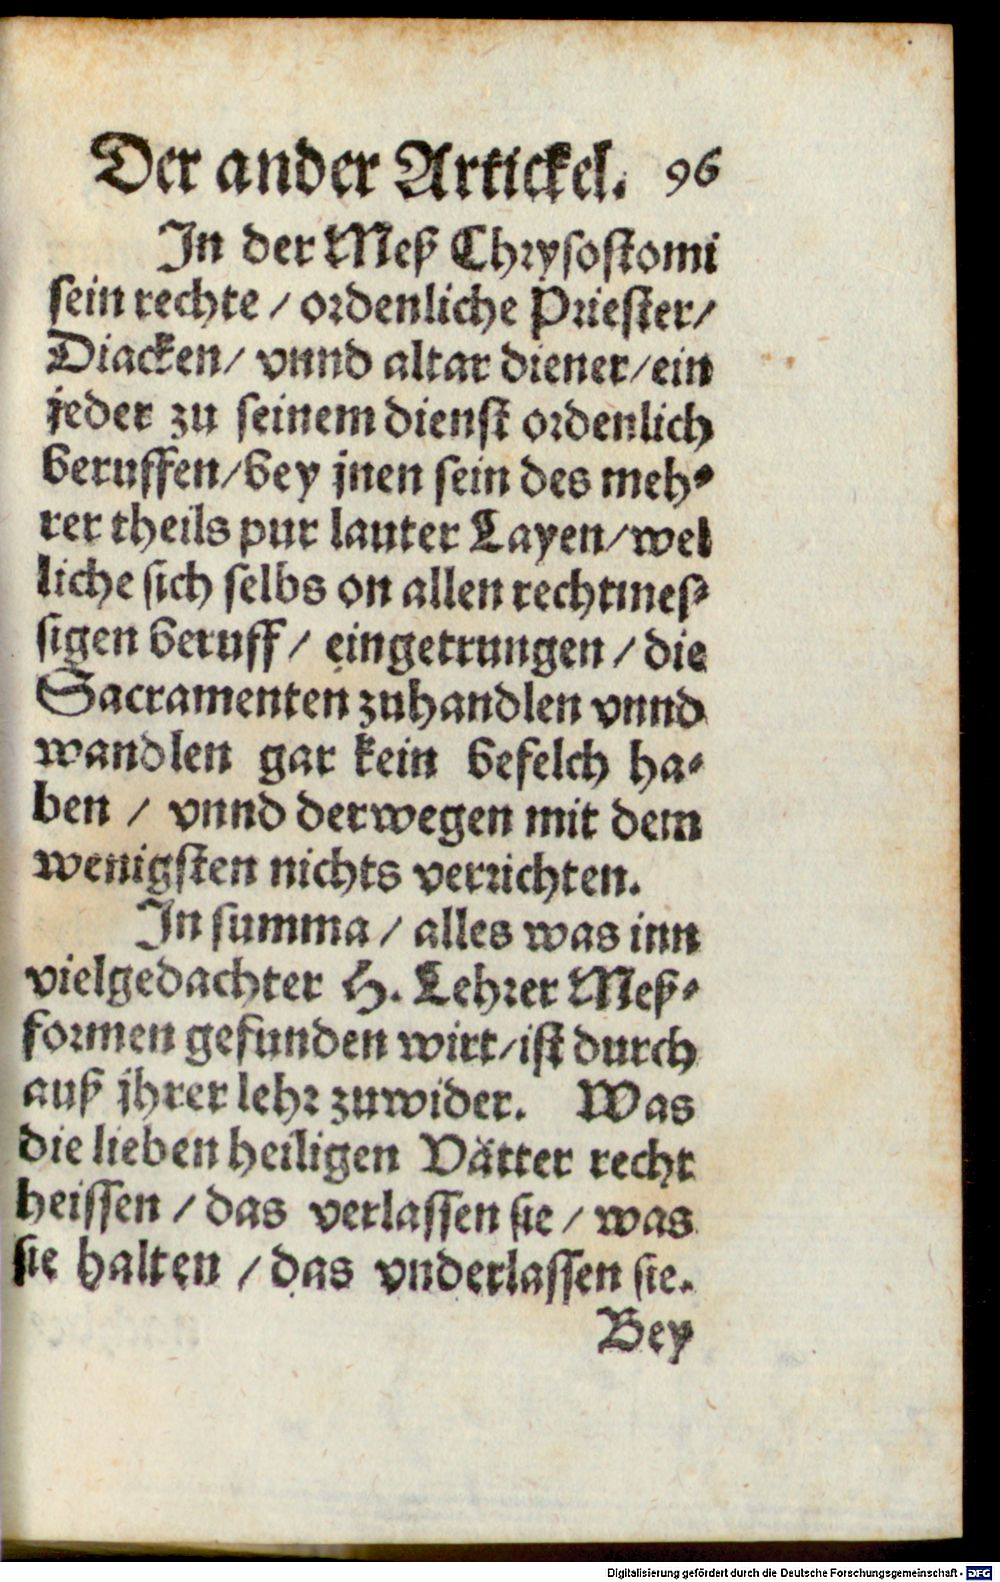 Der ander Artickel. 96
In der Meß Chrysostomi
sein rechte / ordenliche Priester /
Diacken / vnnd altar diener / ein
jeder zu seinem dienst ordenlich
beruffen / bey jnen sein des meh⸗
rer theils pur lauter Layen / wel
liche sich selbs on allen rechtmes⸗
sigen beruff / eingetrungen / die
Sacramenten zuhandlen vnnd
wandlen gar kein befelch ha⸗
ben / vnnd derwegen mit dem
wenigsten nichts verrichten.
In summa / alles was inn
vielgedachter H. Lehrer Meß⸗
formen gefunden wirt / ist durch
auß jhrer lehr zuwider. Was
die lieben heiligen Vätter recht
heissen / das verlassen sie / was
sie halten / das vnderlassen sie.
Bey
Digitalisierung gefördert durch die Deutsche Forschungsgemeinschaft - DFG